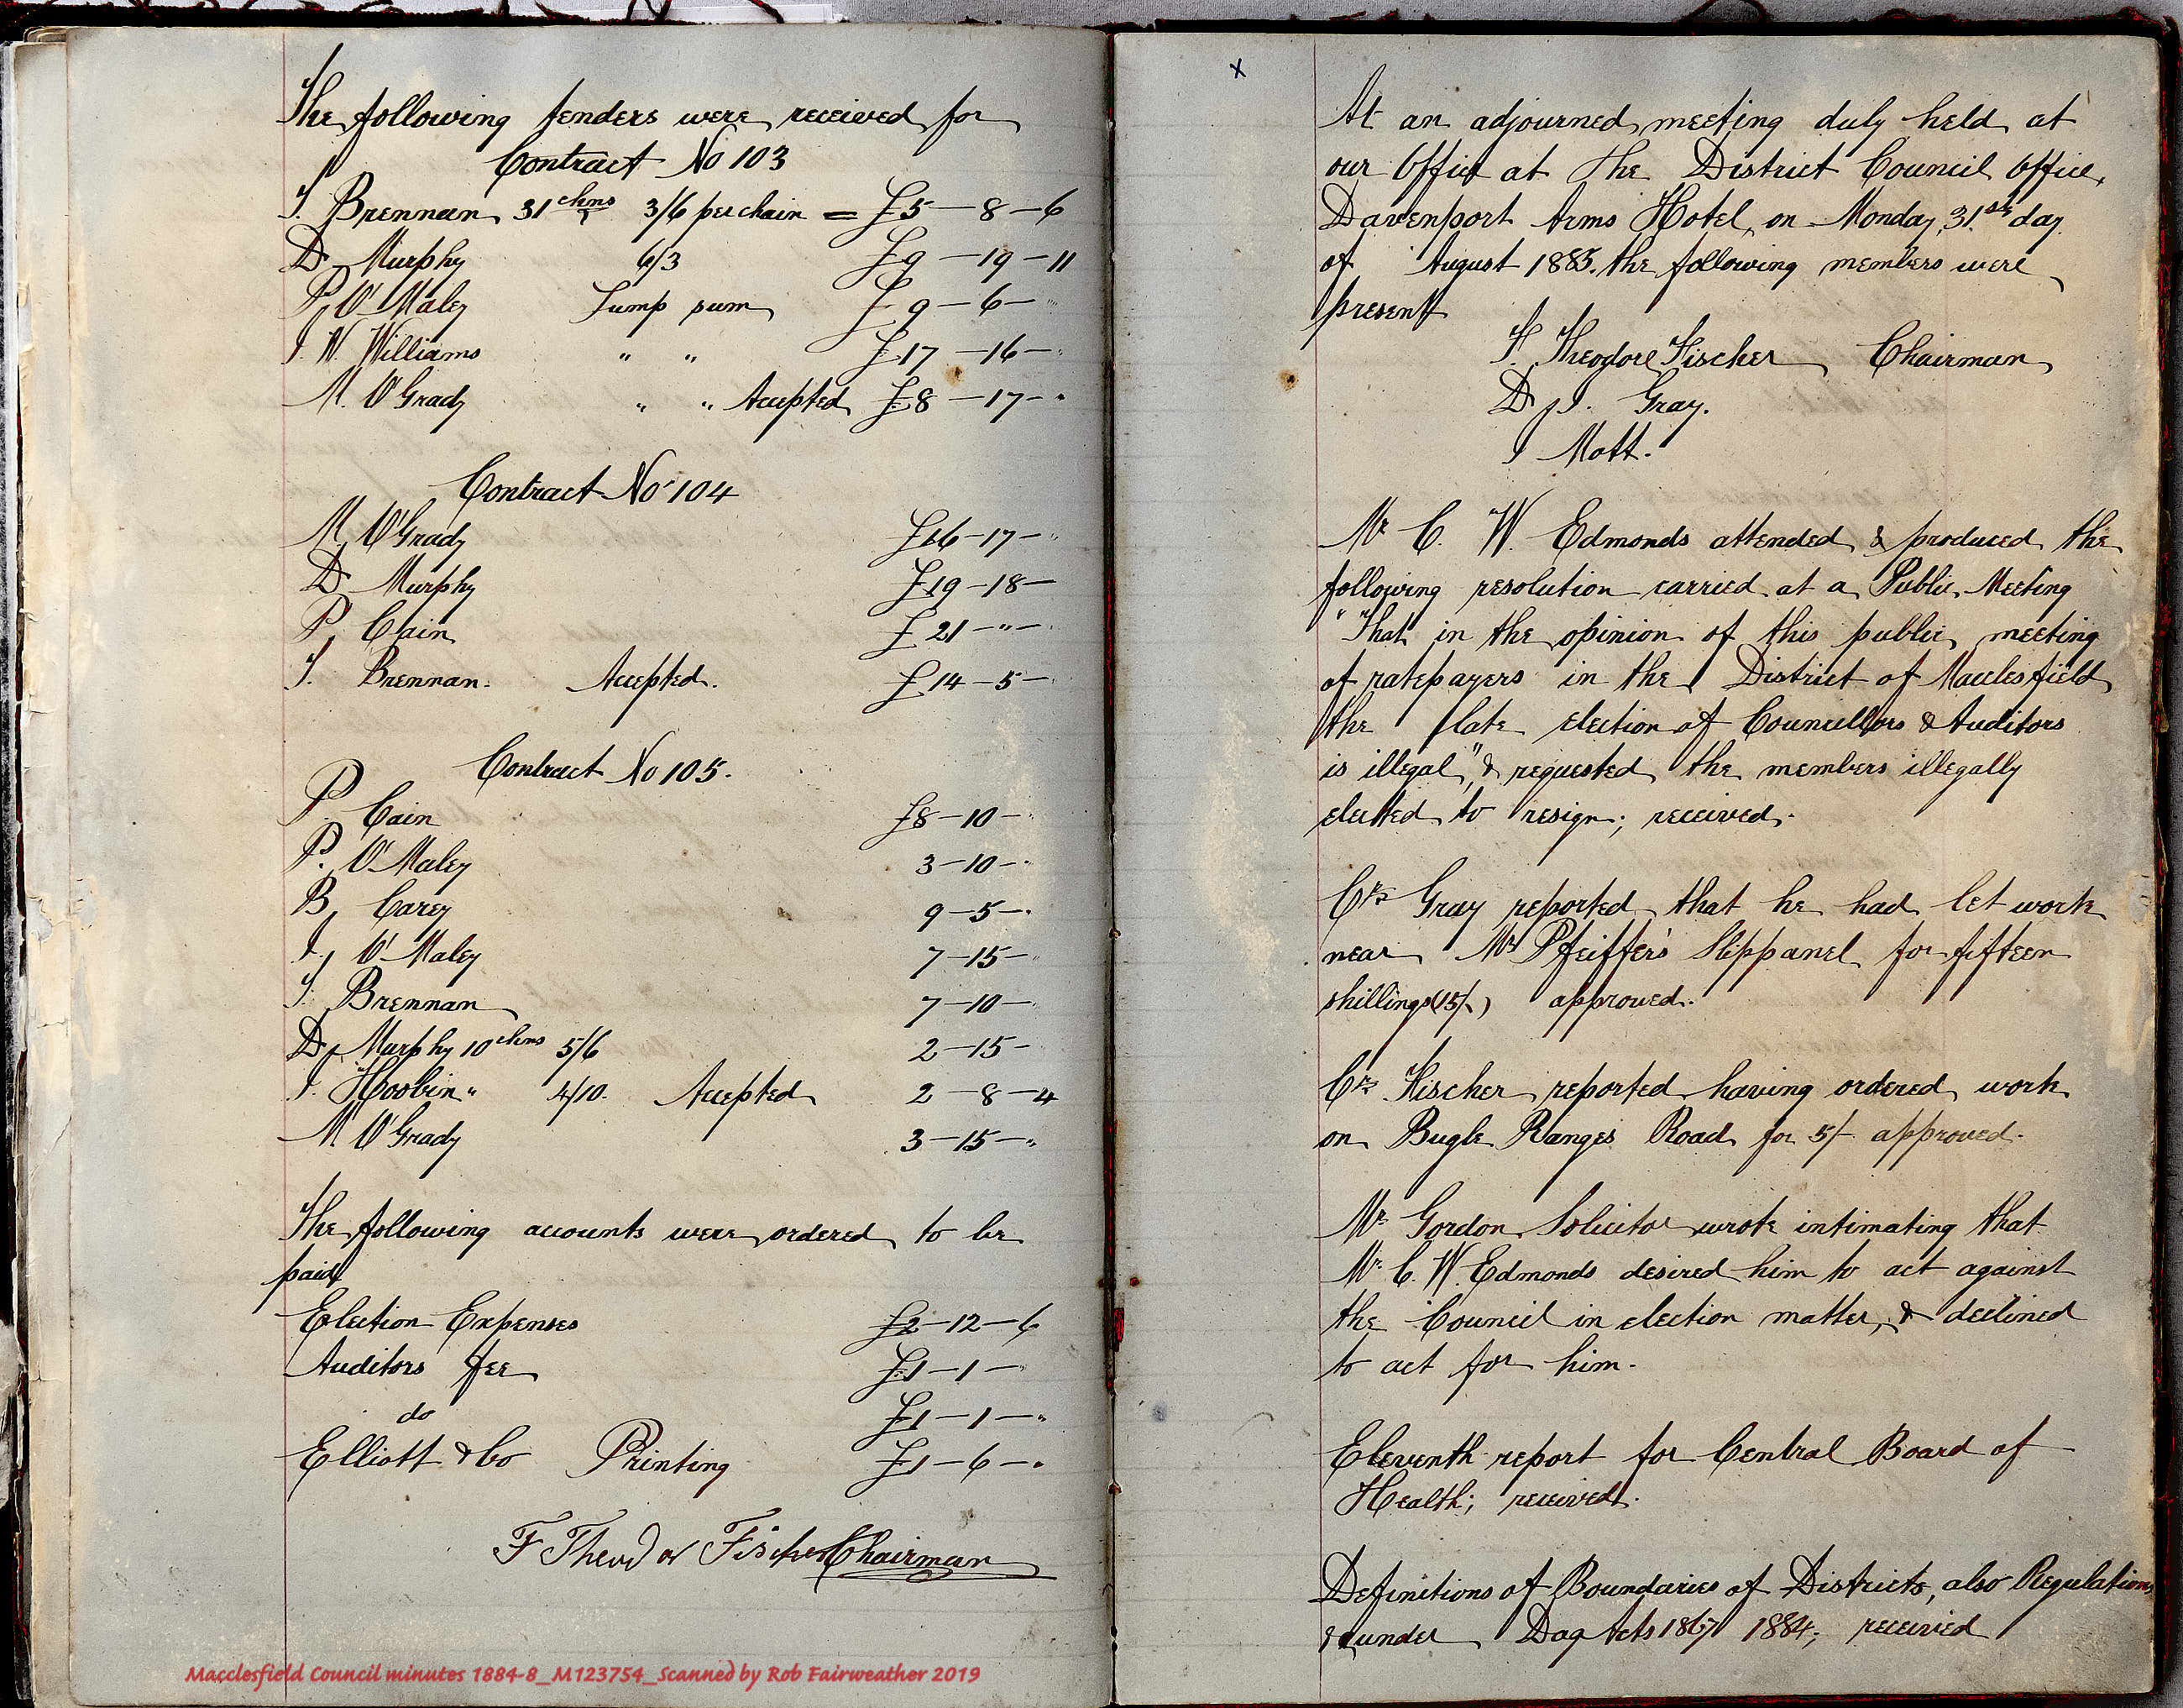 The following tenders were received for
Contract No 103
T. Brennan 31 chns 3/6 per chain = £5—8—6
D Murphy 6/3 £9—19—11
P O'Maley Lump sum £9—6—"
J. W. Williams " " £17—16—"
M. O'Grady " " Accepted £8—17—"
Contract No 104
M O'Grady £16—17—"
D Murphy £19—18—
P Cain £21—"—
T. Brennan. Accepted. £14—5—
Contract No 105.
P Cain £8—10—"
P. O'Maley 3—10—"
B Carey 9—5—"
J O'Maley 7—15—"
T. Brennan 7—10—"
D Murphy 10 chns 5/6 2—15—
J. Hoobin " 4/10. Accepted 2—8—4
M O'Grady 3—15—"
The following accounts were ordered to be
paid
Election Expenses £2—12—6
Auditors fee £1—1—"
do £1—1—"
Elliott & Co Printing £1—6—"
F Theodor Fischer Chairman
Macclesfield Council minutes 1884-8_M123754_Scanned by Rob Fairweather 2019
x
At an adjourned meeting duly held at
our Office at the District Council Office,
Davenport Arms Hotel, on Monday 31st day
of August 1885. the following members were
present
F. Theodore Fischer Chairman
D J. Gray.
J Mott.
Mr C. W. Edmonds attended & produced the
following resolution carried at a Public Meeting
"That in the opinion of this public meeting
of ratepayers in the District of Macclesfield
the late election of Councillors & Auditors
is illegal", & requested the members illegally
elected to resign; received.
Crs Gray reported that he had let work
near Mr Pfeiffer's Slippanel for fifteen
shillings (15/-) approved.
Crs Fischer reported having ordered work
on Bugle Ranges Road for 5/- approved.
Mr Gordon Solicitor wrote intimating that
Mr C. W. Edmonds desired him to act against
the Council in election matter, & declined
to act for him.
Eleventh report for Central Board of
Health; received.
Definitions of Boundaries of Districts, also Regulations
under Dog Acts 1867 1884; received